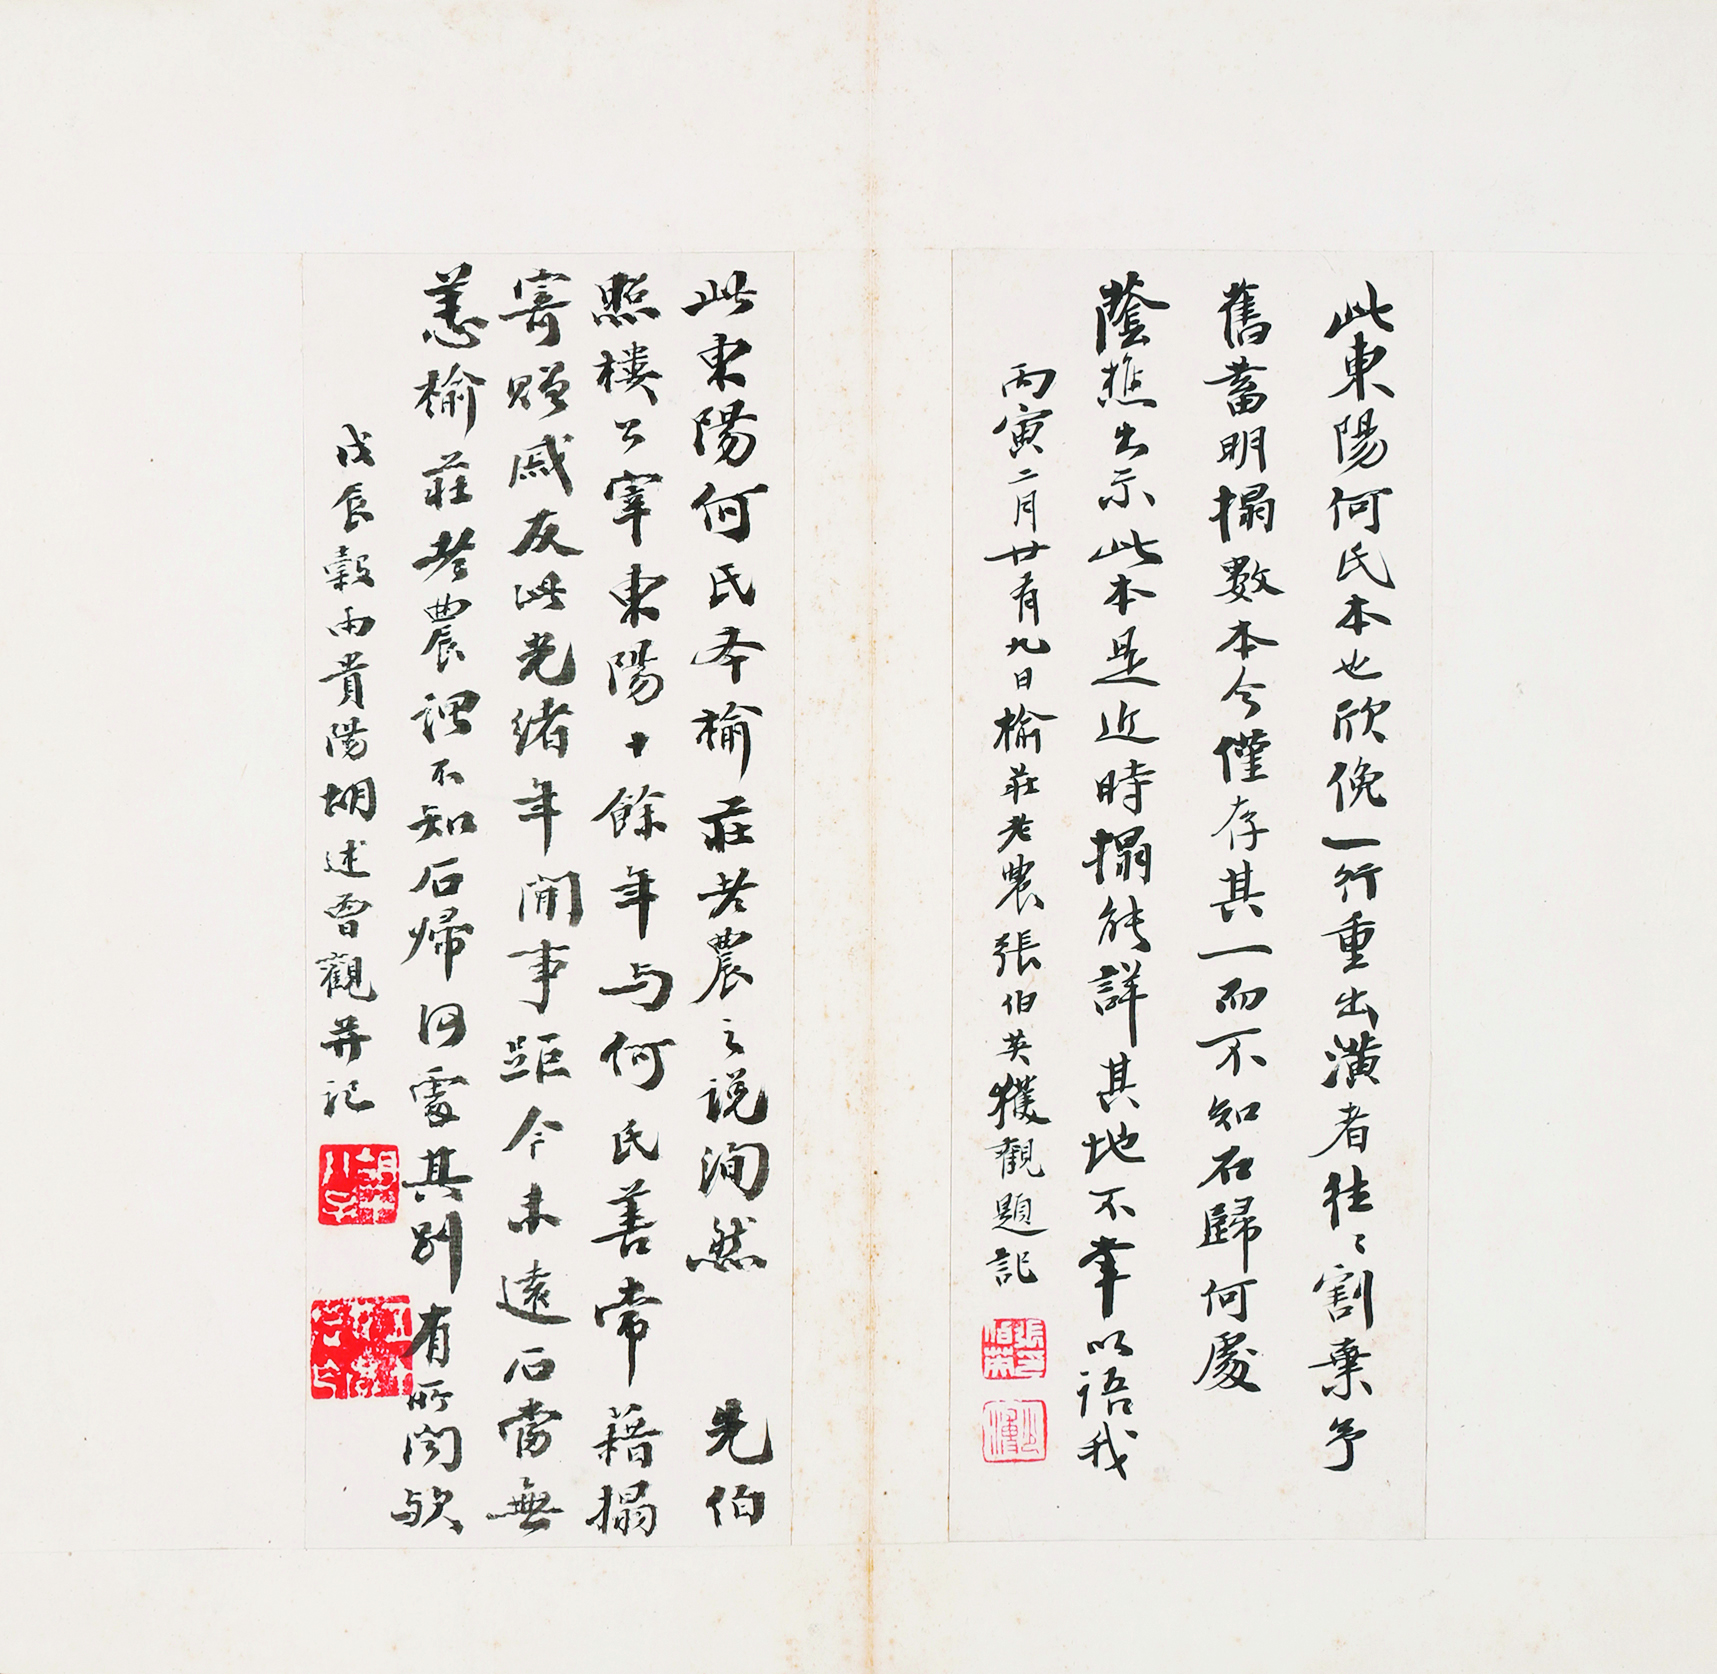 此東陽何氏本也欣俛一行重出潢者往〻割棄予
舊蓄明搨數本今僅存其一而不知石歸何處
蔭樵出示此本是近時搨能詳其地不幸以語我
丙寅二月廿有九日榆莊老農張伯英獲觀題記
張伯英
此東陽何氏本榆莊老農之說洵然 先伯
照樓公宰東陽十餘年与何氏善常藉搨
寄贈戚友此光緒年間事距今未遠石當無
恙榆莊老農謂不知石歸何處其別有所聞歟
戊辰穀雨貴陽胡述曾觀并記